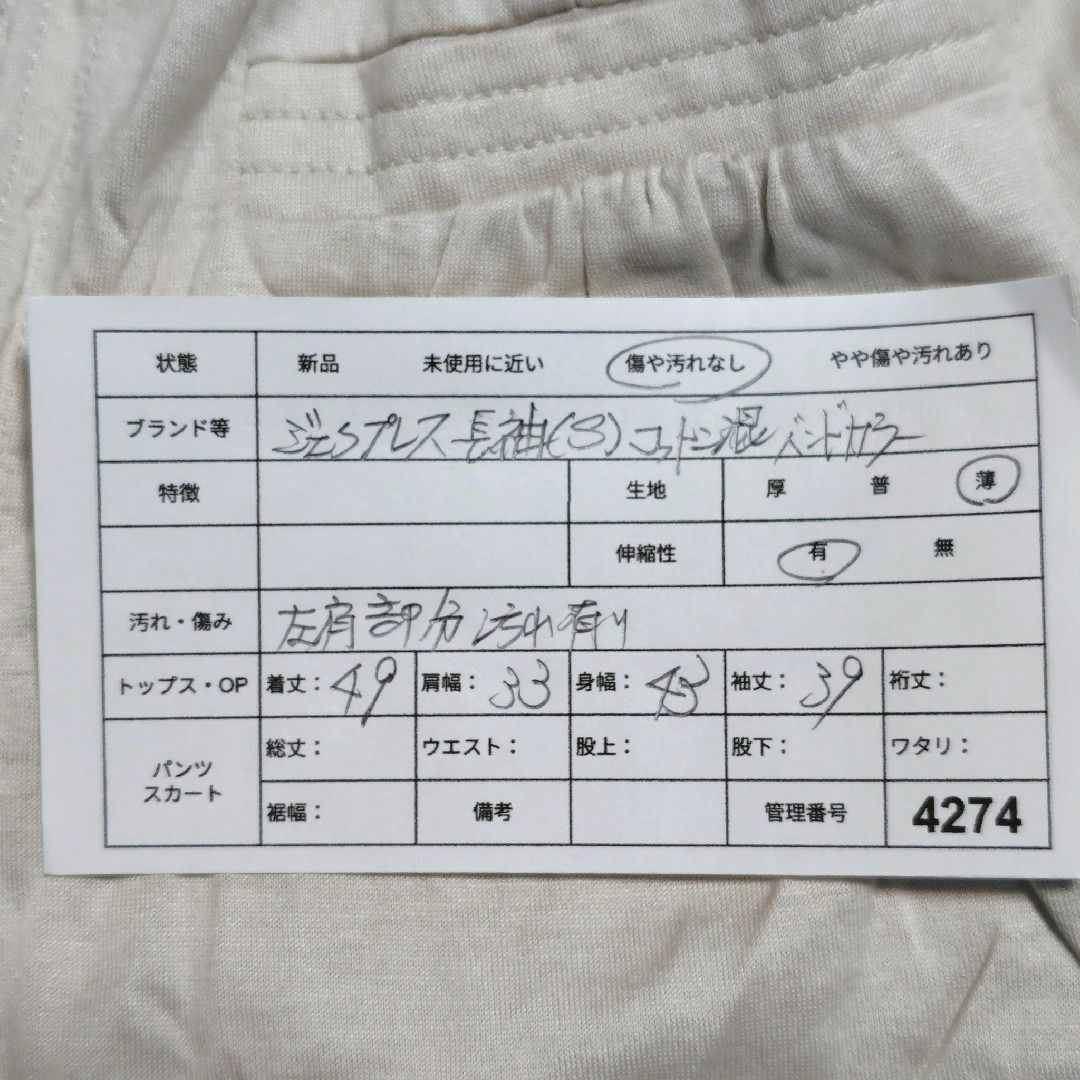 状態 新品 未使用に近い 傷や汚れなし やや傷や汚れあり
ブランド等 ジェSプレス 長袖(S) コットン混 バンドカラー
特徴 生地 厚 普 薄
伸縮性 有 無
汚れ・傷み 左肩部分 汚れ有り
トップス・OP 着丈:49 肩幅:33 身幅:43 袖丈:39 裄丈:
パンツ スカート 総丈: ウエスト: 股上: 股下: ワタリ:
裾幅: 備考 管理番号 4274